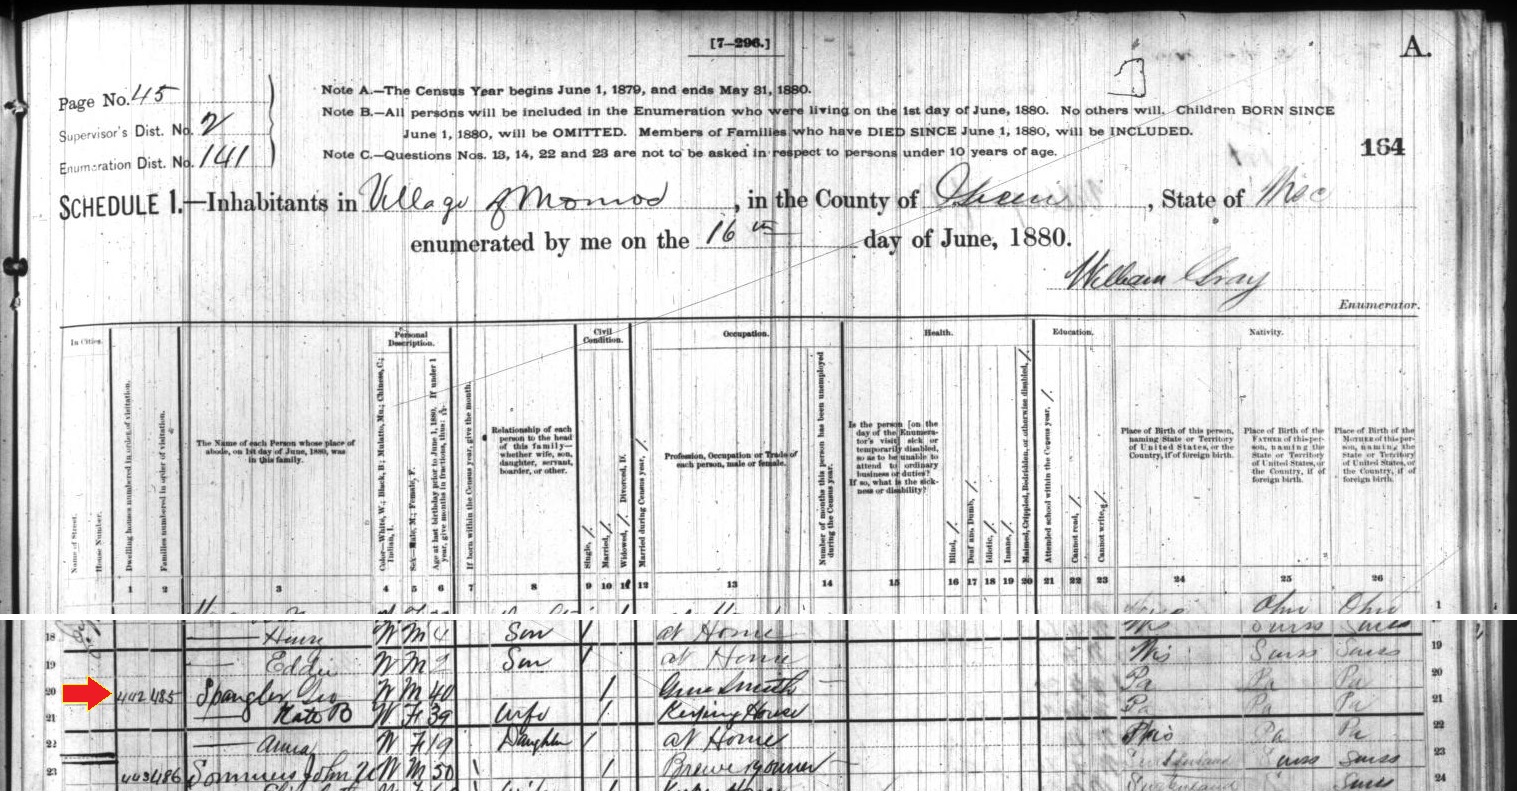 [7-296.]
A.
Page No. 45
Supervisor's Dist. No. 2
Enumeration Dist. No. 141
Note A.—The Census Year begins June 1, 1879, and ends May 31, 1880.
Note B.—All persons will be included in the Enumeration who were living on the 1st day of June, 1880. No others will. Children BORN SINCE
June 1, 1880, will be OMITTED. Members of Families who have DIED SINCE June 1, 1880, will be INCLUDED.
Note C.—Questions Nos. 13, 14, 22 and 23 are not to be asked in respect to persons under 10 years of age.
164
SCHEDULE 1.—Inhabitants in Village of Monroe, in the County of Green, State of Wisc
enumerated by me on the 16th day of June, 1880.
William Gray
Enumerator.
In Cities.
Name of Street.
House Number.
Dwelling houses numbered in order of visitation.
Families numbered in order of visitation.
The Name of each Person whose place of
abode, on 1st day of June, 1880, was
in this family.
Personal
Description.
Color—White, W.; Black, B.; Mulatto, Mu.; Chinese, C.;
Indian, I.
Sex—Male, M.; Female, F.
Age at last birthday prior to June 1, 1880. If under 1
year, give months in fractions, thus:
If born within the Census year, give the month.
Relationship of each
person to the head
of this family—
whether wife, son,
daughter, servant,
boarder, or other.
Civil
Condition.
Single, /.
Married, /.
Widowed, /. Divorced, D.
Married during Census year, /.
Occupation.
Profession, Occupation or Trade of
each person, male or female.
Number of months this person has been unemployed
during the Census year.
Health.
Is the person [on the
day of the Enumera-
tor's visit] sick or
temporarily disabled,
so as to be unable to
attend to ordinary
business or duties?
If so, what is the sick-
ness or disability?
Blind, /.
Deaf and Dumb, /.
Idiotic, /.
Insane, /.
Maimed, Crippled, Bedridden, or otherwise disabled, /.
Education.
Attended school within the Census year, /.
Cannot read, /.
Cannot write, /.
Nativity.
Place of Birth of this person,
naming State or Territory
of United States, or the
Country, if of foreign birth.
Place of Birth of the
FATHER of this per-
son, naming the
State or Territory
of United States, or
the Country, if of
foreign birth.
Place of Birth of the
MOTHER of this per-
son, naming the
State or Territory
of United States, or
the Country, if of
foreign birth.
1 2 3 4 5 6 7 8 9 10 11 12 13 14 15 16 17 18 19 20 21 22 23 24 25 26
Ohio Ohio 1
18 Henry W M Son / at Home Wis Swiss Swiss 19
19 Eddie W M 9 Son / at Home Wis Swiss Swiss 20
20 442 485 Spangler Geo W M 40 / Gunsmith Pa Pa Pa 21
21 Kate B W F 39 Wife / Keeping House Pa Pa Pa 22
22 Anna W F 19 Daughter / at Home Ohio Pa Pa 23
23 443 486 Sommers John W M 50 / / Brewer Switzerland Swiss Swiss 24
Switzerland Swiss